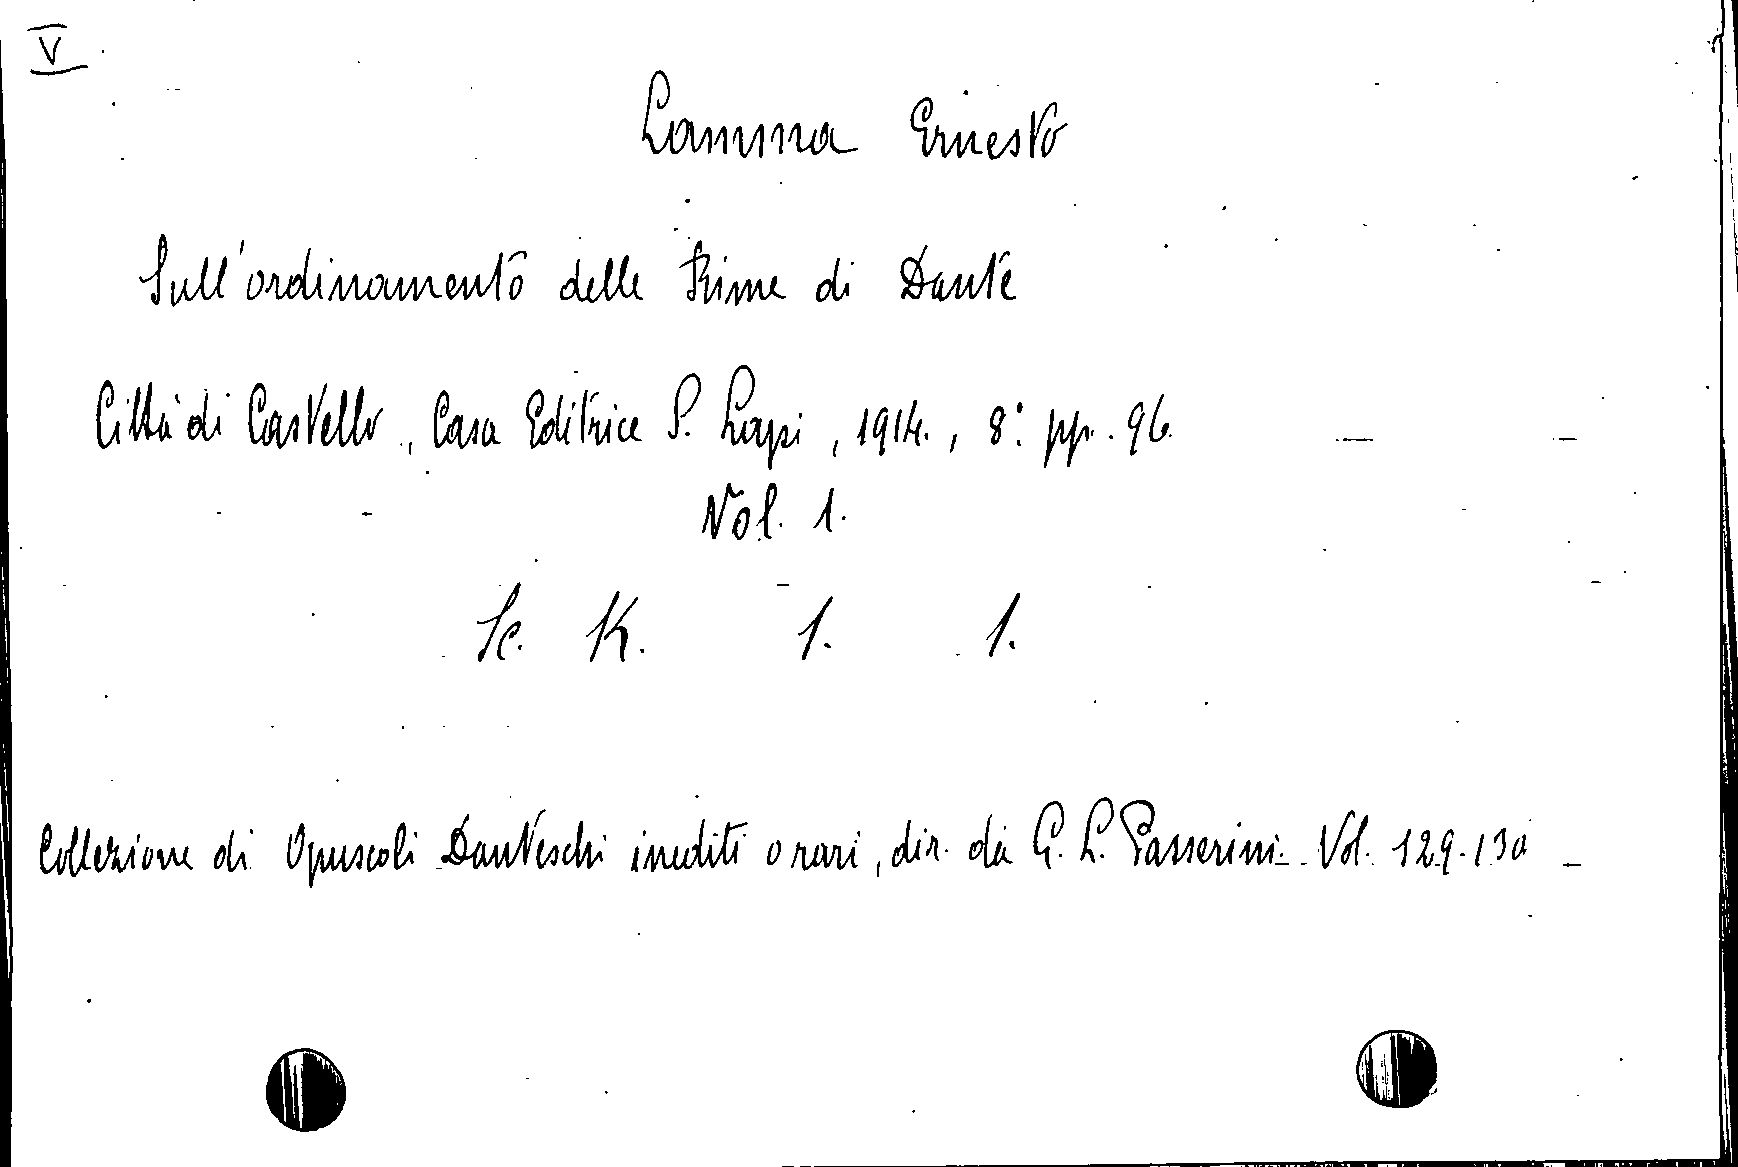 V
Lamma Ernesto
Sull'ordinamento delle Rime di Dante
Città di Castello, Casa Editrice S. Lapi, 1914., 8° pp. 96
Vol. 1.
Sc. K. 1. 1.
Collezione di Opuscoli Danteschi inediti o rari, dir. da G. L. Passerini. Vol. 129.130